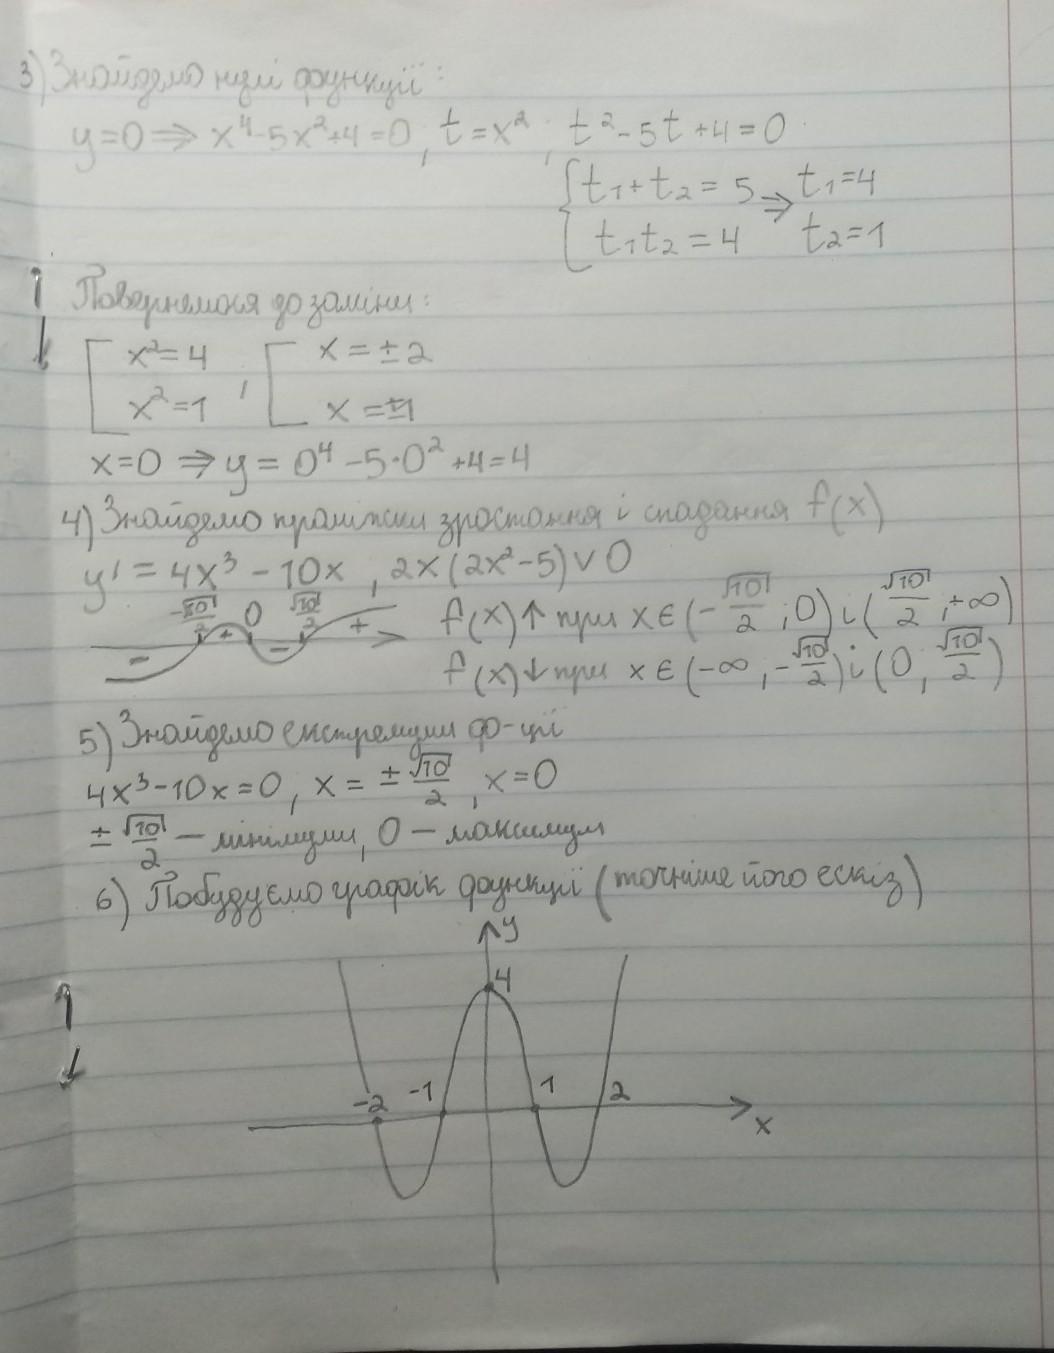 3) Знайдемо нулі функції:
y=0 ⇒ x⁴-5x²+4=0, t=x², t²-5t+4=0
{t₁+t₂=5 ⇒ t₁=4
t₁t₂=4 t₂=1
Повернемося до заміни:
[x²=4, [x=±2
x²=1 x=±1
x=0 ⇒ y=0⁴-5·0²+4=4
4) Знайдемо проміжки зростання і спадання f(x)
y'=4x³-10x, 2x(2x²-5)∨0
-√10/2 0 √10/2 f(x)↑ при x∈(-√10/2;0) і (√10/2,+∞)
- + - + f(x)↓ при x∈(-∞,-√10/2) і (0,√10/2)
5) Знайдемо екстремуми ф-ції
4x³-10x=0, x=±√10/2, x=0
±√10/2 — мінімуми, 0 — максимум
6) Побудуємо графік функції (точніше його ескіз)
y
4
-2 -1 1 2
x